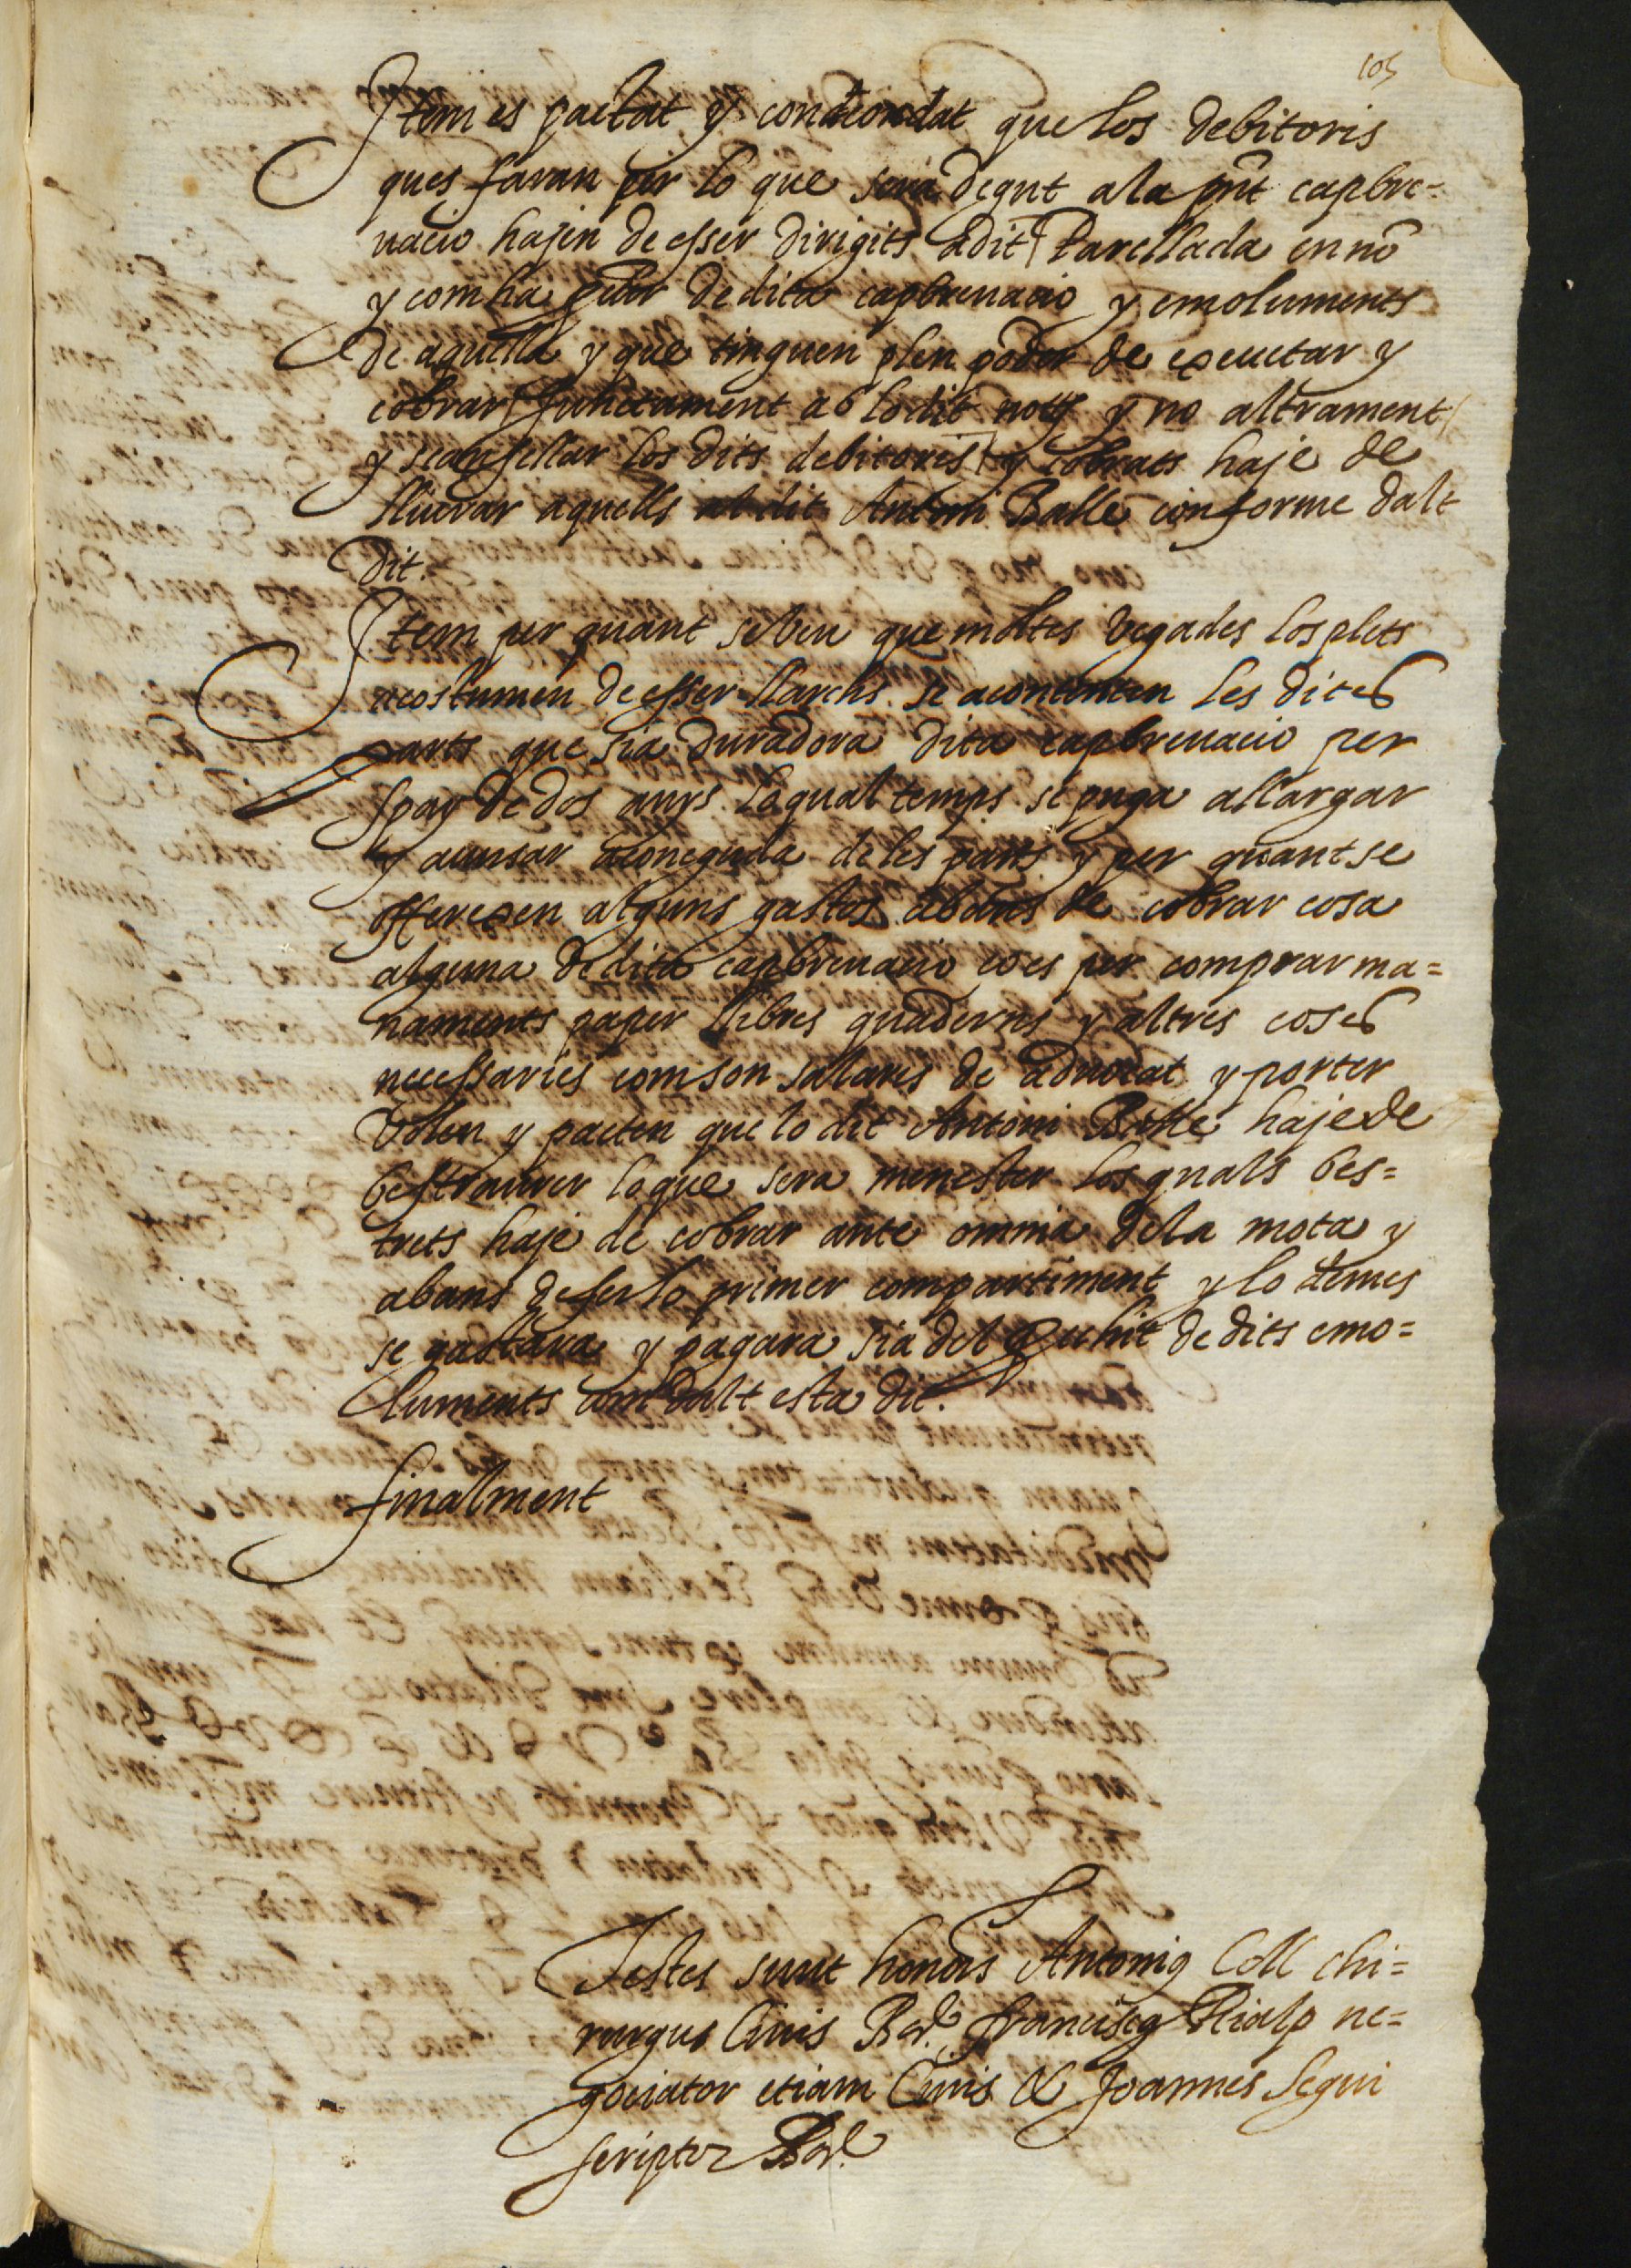 105
Item es pactat y concordat que los debitoris
ques faran per lo que sera degut a la pñt capbre=
uacio hajen de esser dirigits a dit Parellada en nõ
y com ha de dita capbreuacio y emoluments
de aquella y que tinguen plen poder de executar y
cobrar junctament ab lo dit noty y no altrament
y scansellar los dits debitoris y cobrats haje de
lliurar aquells al dit Antoni Batlle conforme dalt
dit.
Item per quant se veu que moltes vegades los plets
acostumen de esser llarchs se acontenten les dites
parts que sia duradora dita capbreuacio per
spay de dos anys lo qual temps se puga allargar
y auansar a coneguda de les parts y per quant se
offerexen alguns gastos abans de cobrar cosa
alguna de dita capbreuacio ço es per comprar ma=
naments paper llibres quaderns y altres coses
necessaries com son salaris de aduocat y porter
Volen y pacten que lo dit Antoni Batlle haje de
bestraurer lo que sera menester los quals bes=
trets haje de cobrar ante omnia de la mota y
abans de fer lo primer compartiment y lo demes
se gastara y pagara sia del de dits emo=
luments com dalt esta dit.
finalment
Testes sunt honor̃s Antoniꝯ Coll chi=
rurgus Ciuis Bar̃. Franciscꝯ Rialp ne=
gociator etiam Ciuis & Joannes Segui
scriptor Bar̃.